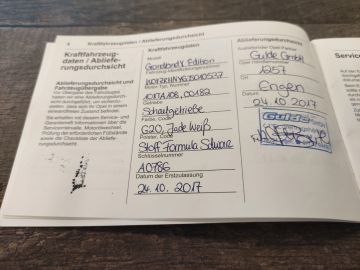 4 Kraftfahrzeugdaten / Ablieferungsdurchsicht
Kraftfahrzeug-
daten / Abliefe-
rungsdurchsicht
Ablieferungsdurchsicht und
Fahrzeugübergabe
Vor Übergabe des Fahrzeuges
haben wir eine Ablieferungsdurch-
sicht durchgeführt, um sicherzu-
stellen, dass sich Ihr Opel in einem
einwandfreien Zustand befindet.
Sie erhalten mit diesem Service- und
Garantieheft Informationen über die
Serviceintervalle, Motorölwechsel,
Prüfung der erforderlichen Füllstände
sowie die Checkliste der Ablieferungsdurchsicht.
Kraftfahrzeugdaten
Modell
Edition
Fahrzeug-Identifizierungsnummer
Motor-Typ, Nummer
Getriebe
Schaltgetriebe
Farbe, Code
G20, Jade Weiß
Polster, Code
Stoff Formula
Schlüsselnummer
A0786
Datum der Erstzulassung
24.10.2017
Ablieferungsdurchsicht
Ausliefernder Opel Partner
Gulde GmbH
Opel
6257
Ort
Engen
24.10.2017
Gulde